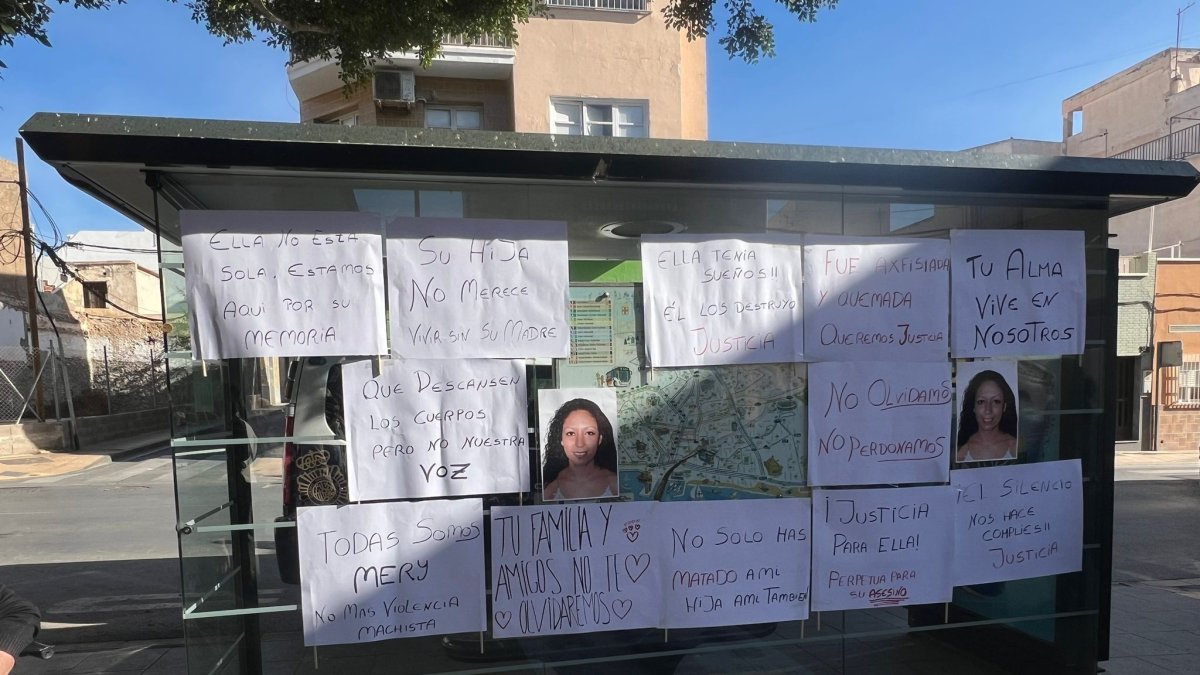 ELLA NO ESTA
SOLA, ESTAMOS
AQUI POR SU
MEMORIA
SU HIJA
NO MERECE
VIVIR SIN SU MADRE
ELLA TENIA
SUEÑOS!!
ÉL LOS DESTRUYO
JUSTICIA
FUE AXFISIADA
Y QUEMADA
QUEREMOS JUSTICIA
TU ALMA
VIVE EN
NOSOTROS
QUE DESCANSEN
LOS CUERPOS
PERO NO NUESTRA
VOZ
NO OLVIDAMOS
NO PERDONAMOS
TODAS SOMOS
MERY
NO MAS VIOLENCIA
MACHISTA
TU FAMILIA Y
AMIGOS NO TE
OLVIDAREMOS
NO SOLO HAS
MATADO A MI
HIJA A MI TAMBIEN
¡JUSTICIA
PARA ELLA!
PERPETUA PARA
SU ASESINO
¡EL SILENCIO
NOS HACE
COMPLICES!!
JUSTICIA